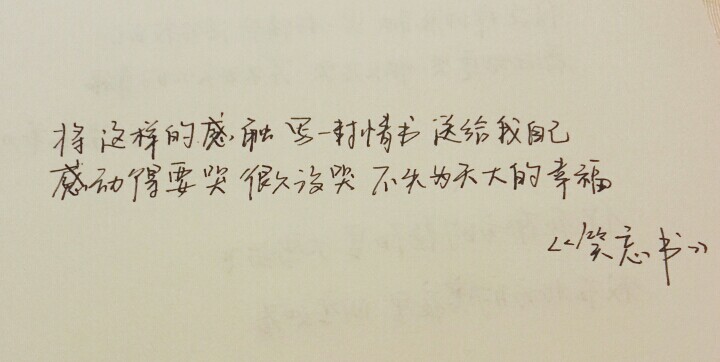 将这样的感触 写一封情书 送给我自己
感动得要哭 很久没哭 不失为天大的幸福
《笑忘书》